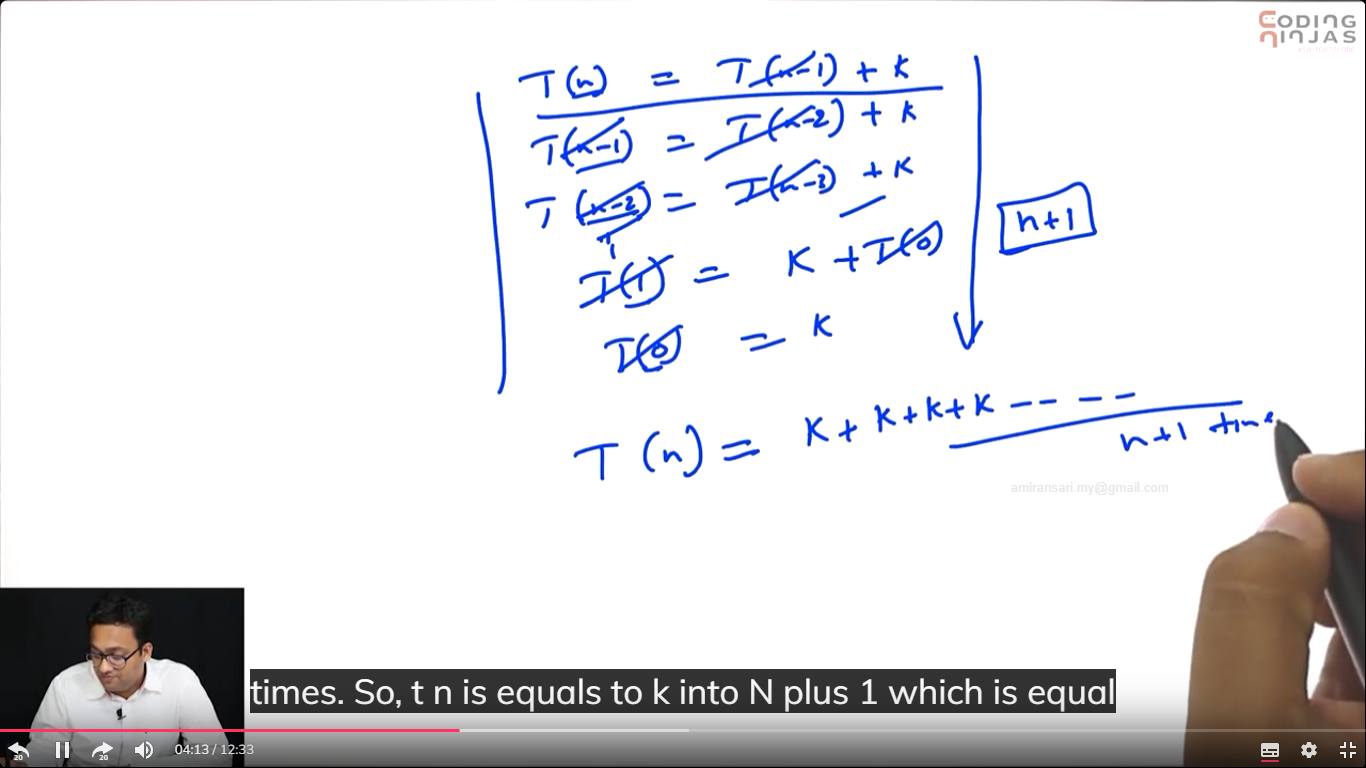 CODING
NINJAS
T(n) = T(n-1) + k
T(n-1) = T(n-2) + k
T(n-2) = T(n-3) + k
T(1) = k + T(0)
T(0) = k
n+1
T(n) = k + k + k + k -- -- 
n+1 time
amiransari.my@gmail.com
times. So, t n is equals to k into N plus 1 which is equal
20
20
04:13 / 12:33